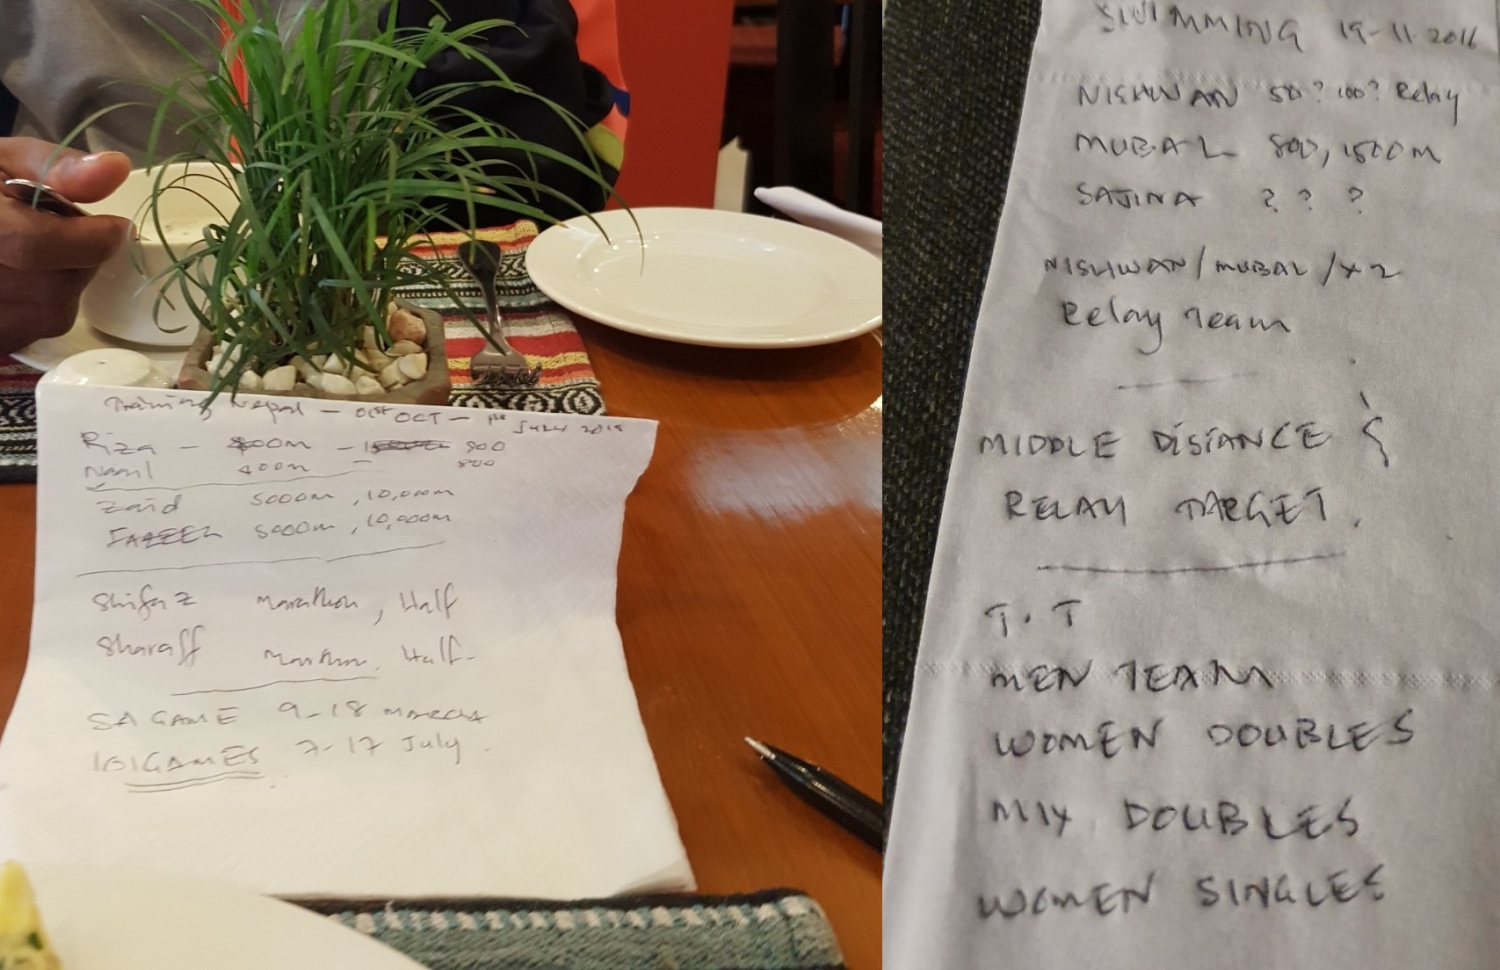 Training Nepal – 01st OCT – 1st JULY 2019
Riza – 400m – 800
Naail 400m – 800
Zaid 5000m, 10,000m
5000m, 10,000m
Shifaz Marathon, Half
Sharaff Marathon, Half
SA GAME 9–18 MARCH
IOIGAMES 7–17 July.
SWIMMING 19-11-2016
NISHWAN 50? 100? Relay
MUBAL 800, 1500m
SAJINA ? ? ?
NISHWAN/MUBAL/x2
Relay Team
MIDDLE DISTANCE &
RELAY TARGET.
T.T
MEN TEAM
WOMEN DOUBLES
MIX DOUBLES
WOMEN SINGLES